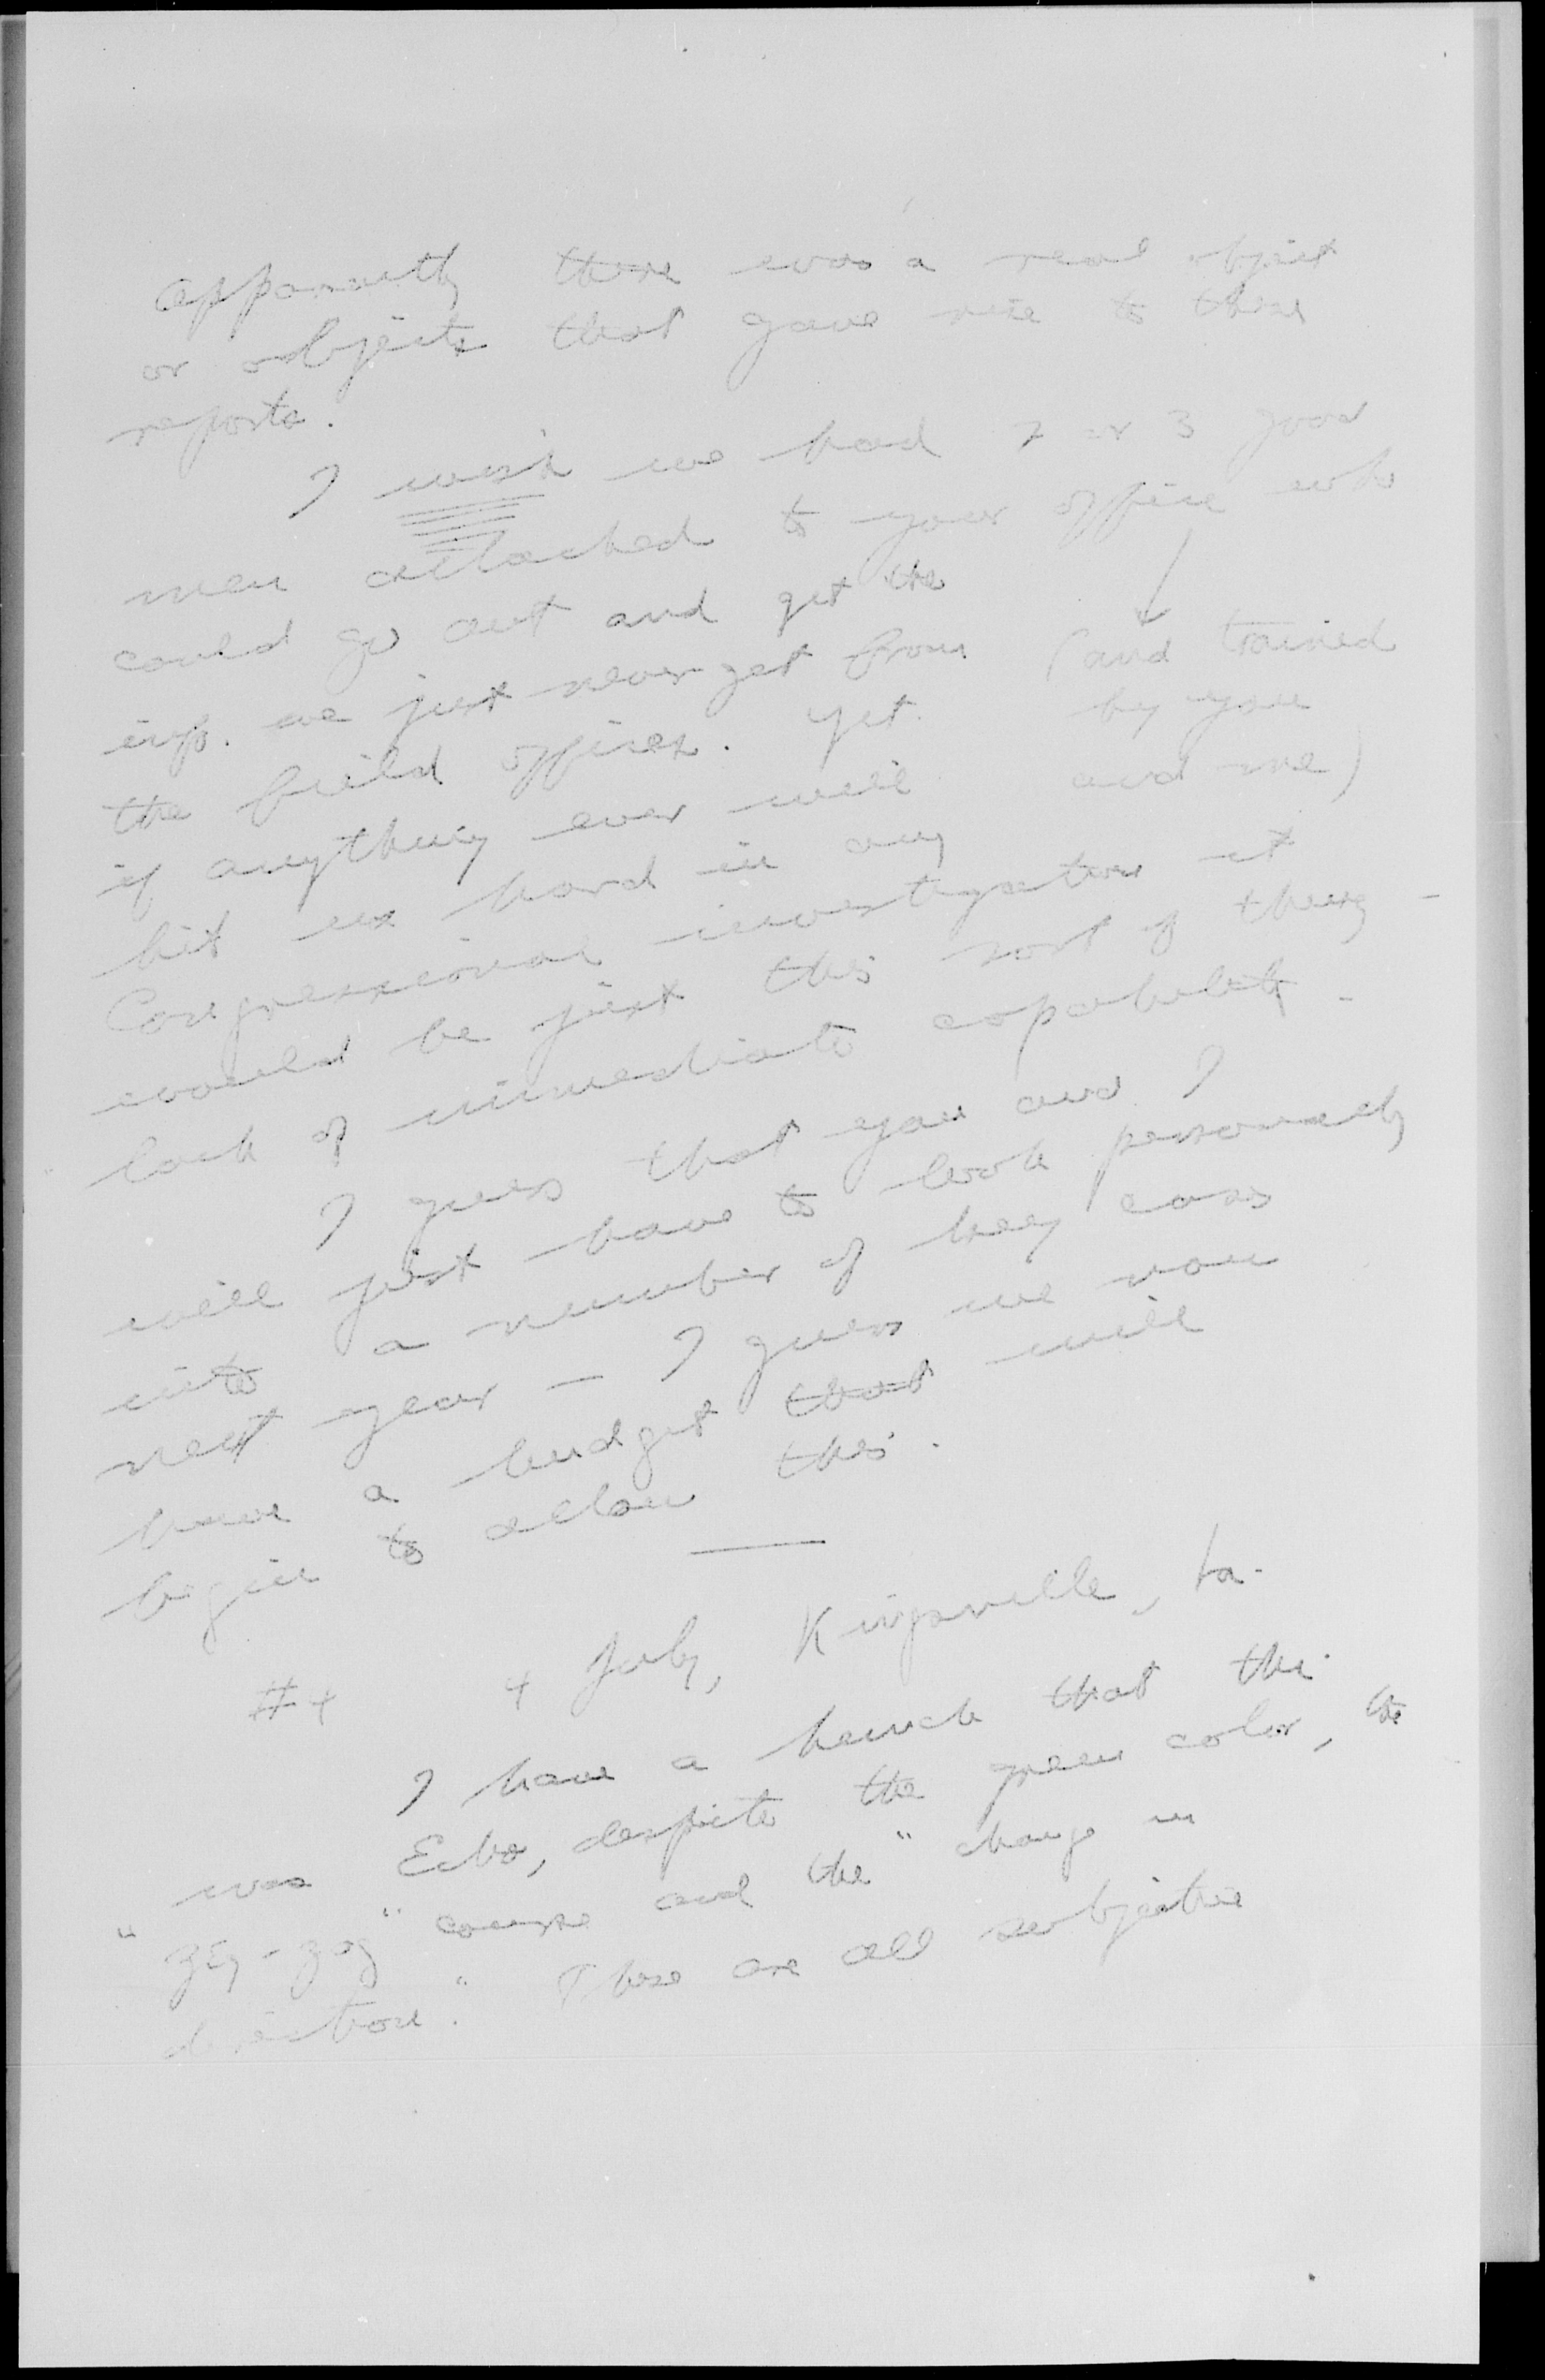 apparently there was a real object
or objects that gave rise to these
reports.
I wish we had 2 or 3 good
men attached to your office who
could go out and get the
info. we just never get from (and trained
the field offices. Yet by you
if anything ever will and me)
hit us hard in any
Congressional investigation it
would be just this sort of thing -
lack of immediate capability -
I guess that you and I
will just have to look personally
into a number of key cases
next year — I guess we now
have a budget that will
begin to allow this.
#4 4 July, Kingsville,
I have a hunch that this
was Echo, despite the green color, the
"zig-zag" course and the "change in
direction." These are all subjective